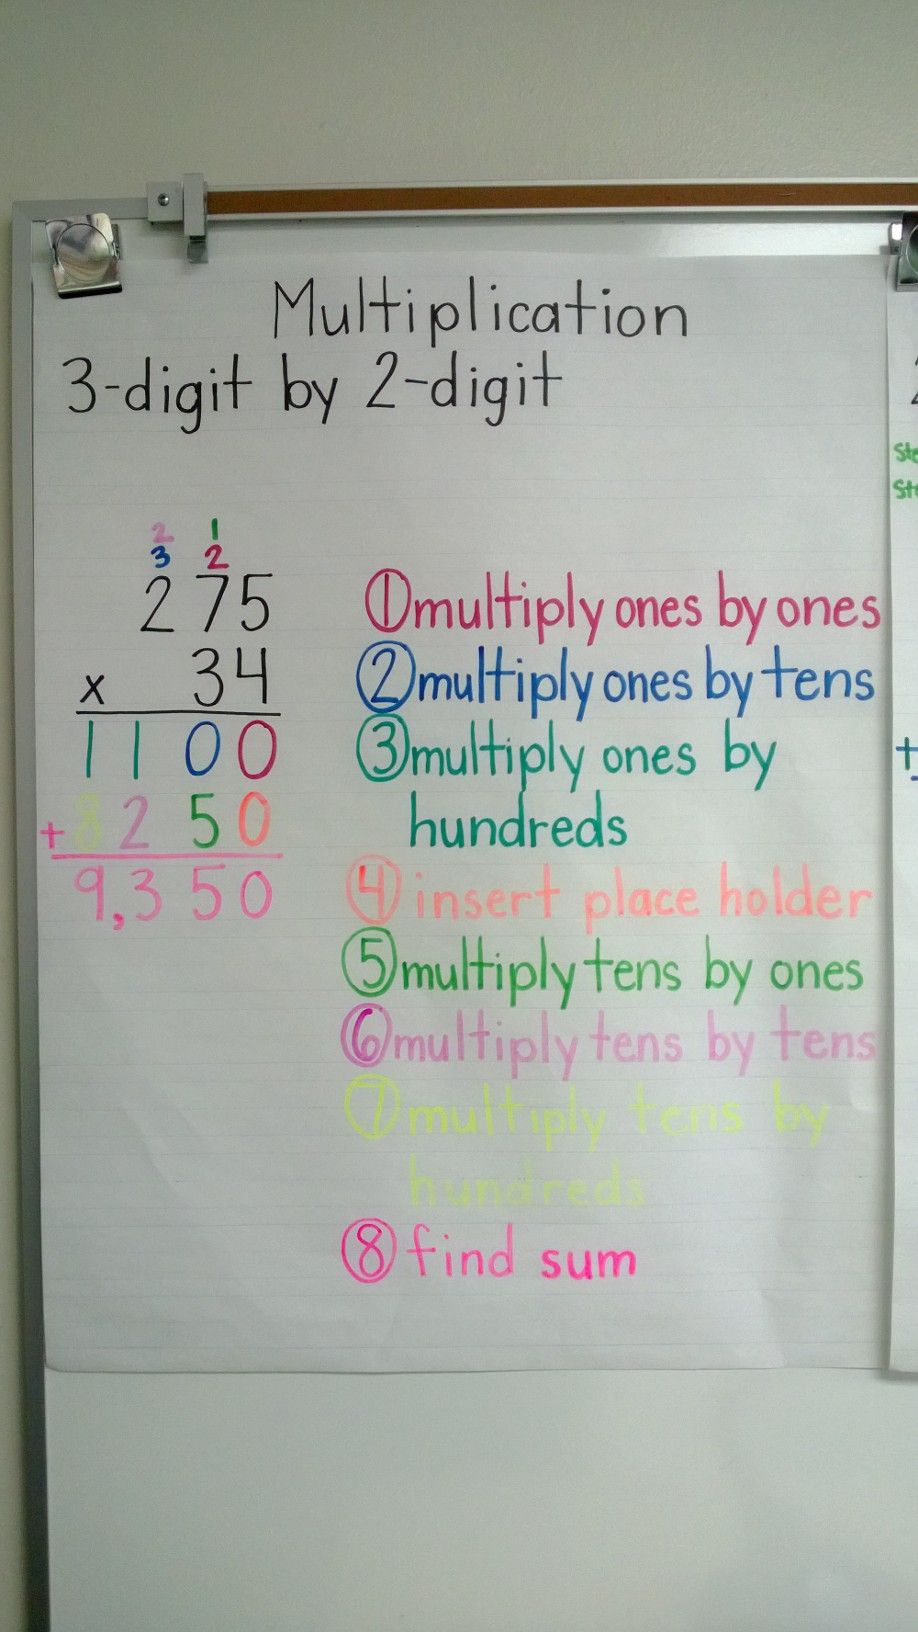 Multiplication
3-digit by 2-digit
2 1
3 2
275
x 34
1100
+8250
9,350
①multiply ones by ones
②multiply ones by tens
③multiply ones by
hundreds
④insert place holder
⑤multiply tens by ones
⑥multiply tens by tens
⑦multiply tens by
hundreds
⑧find sum